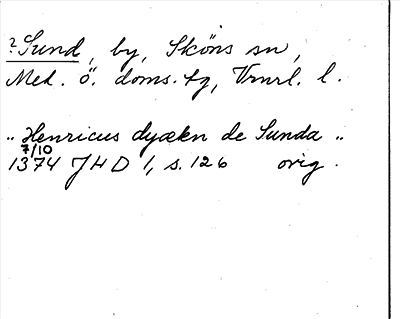 ? Sund, by, Sköns sn,
Med. ö. doms. tg, Vnrl. l.
„ Henricus dyækn de Sunda „
7/10
1374 JHD 1, s. 126 orig.